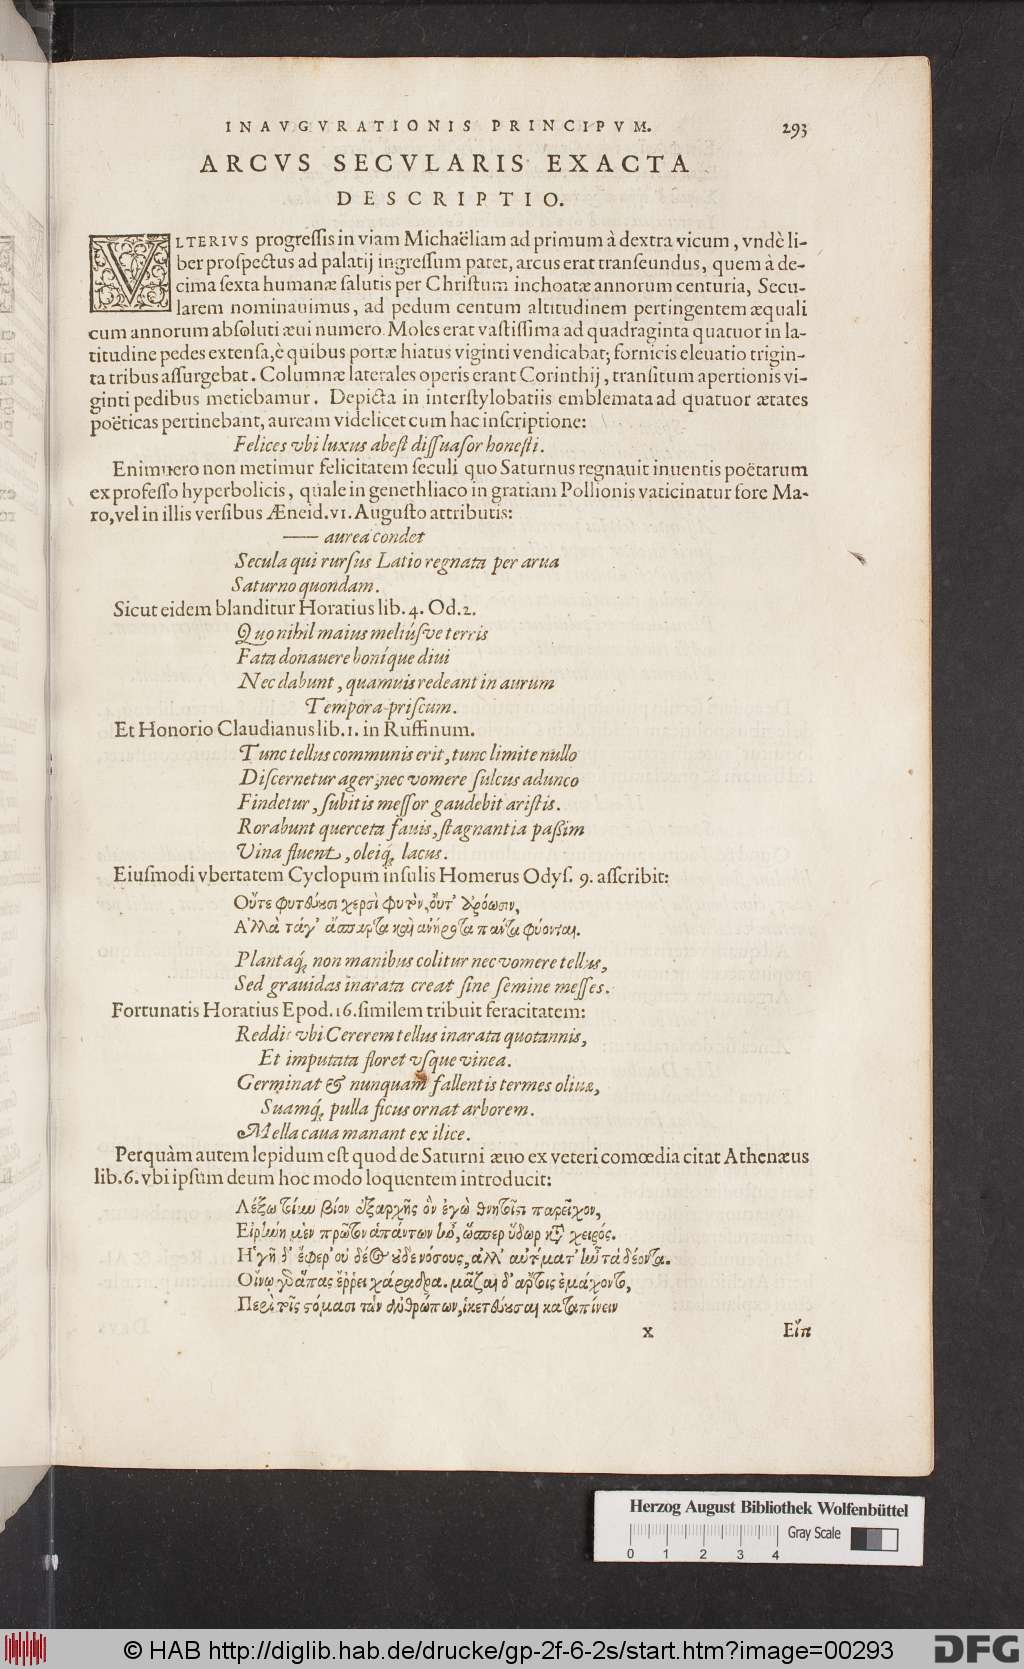 INAVGVRATIONIS PRINCIPVM. 293
ARCVS SECVLARIS EXACTA
DESCRIPTIO.
VLTERIVS progressis in viam Michaëliam ad primum à dextra vicum, vndè li-
ber prospectus ad palatij ingressum patet, arcus erat transeundus, quem à de-
cima sexta humanæ salutis per Christum inchoatæ annorum centuria, Secu-
larem nominauimus, ad pedum centum altitudinem pertingentem æquali
cum annorum absoluti æui numero. Moles erat vastissima ad quadraginta quatuor in la-
titudine pedes extensa, è quibus portæ hiatus viginti vendicabat; fornicis eleuatio trigin-
ta tribus assurgebat. Columnæ laterales operis erant Corinthij, transitum apertionis vi-
ginti pedibus metiebamur. Depicta in interstylobatiis emblemata ad quatuor ætates
poëticas pertinebant, auream videlicet cum hac inscriptione:
Felices vbi luxus abest dissuasor honesti.
Enimuero non metimur felicitatem seculi quo Saturnus regnauit inuentis poëtarum
ex professo hyperbolicis, quale in genethliaco in gratiam Pollionis vaticinatur fore Ma-
ro, vel in illis versibus Æneid. VI. Augusto attributis:
—— aurea condet
Secula qui rursus Latio regnata per arua
Saturno quondam.
Sicut eidem blanditur Horatius lib. 4. Od. 2.
Quo nihil maius meliúsve terris
Fata donauere boníque diui
Nec dabunt, quamuis redeant in aurum
Tempora priscum.
Et Honorio Claudianus lib. 1. in Ruffinum.
Tunc tellus communis erit, tunc limite nullo
Discernetur ager; nec vomere sulcus adunco
Findetur, subitis messor gaudebit aristis.
Rorabunt querceta fauis, stagnantia paßim
Vina fluent, oleiq́; lacus.
Eiusmodi vbertatem Cyclopum insulis Homerus Odys. 9. asscribit:
Οὔτε φυτεύουσι χερσὶ φυτὸν, οὔτ' ἀρόωσιν,
Ἀλλὰ τάγ' ἄσπαρτα καὶ ἀνήροτα πάντα φύονται.
Plantaq́; non manibus colitur nec vomere tellus,
Sed grauidas inarata creat sine semine messes.
Fortunatis Horatius Epod. 16. similem tribuit feracitatem:
Reddit vbi Cererem tellus inarata quotannis,
Et imputata floret vsque vinea.
Germinat & nunquam fallentis termes oliuæ,
Suamq́; pulla ficus ornat arborem.
Mella caua manant ex ilice.
Perquàm autem lepidum est quod de Saturni æuo ex veteri comœdia citat Athenæus
lib. 6. vbi ipsum deum hoc modo loquentem introducit:
Λέξω τοίνυν βίον ἐξαρχῆς ὃν ἐγὼ θνητοῖσι παρεῖχον,
Εἰρήνη μὲν πρῶτον ἁπάντων ἦν, ὥσπερ ὕδωρ κατὰ χειρός.
Ἡ γῆ δ' ἔφερ' οὐ δέος οὐδε νόσους, ἀλλ' αὐτόματ' ἦν τὰ δέοντα.
Οἴνῳ γὰρ ἅπας ἔρρει χαράδρα. μᾶζαι δ' ἄρτοις ἐμάχοντο,
Περὶ τοῖς στόμασι τῶν ἀνθρώπων, ἱκετεύουσαι καταπίνειν
x Εἴπ
Herzog August Bibliothek Wolfenbüttel
Gray Scale
0 1 2 3 4
© HAB http://diglib.hab.de/drucke/gp-2f-6-2s/start.htm?image=00293
DFG